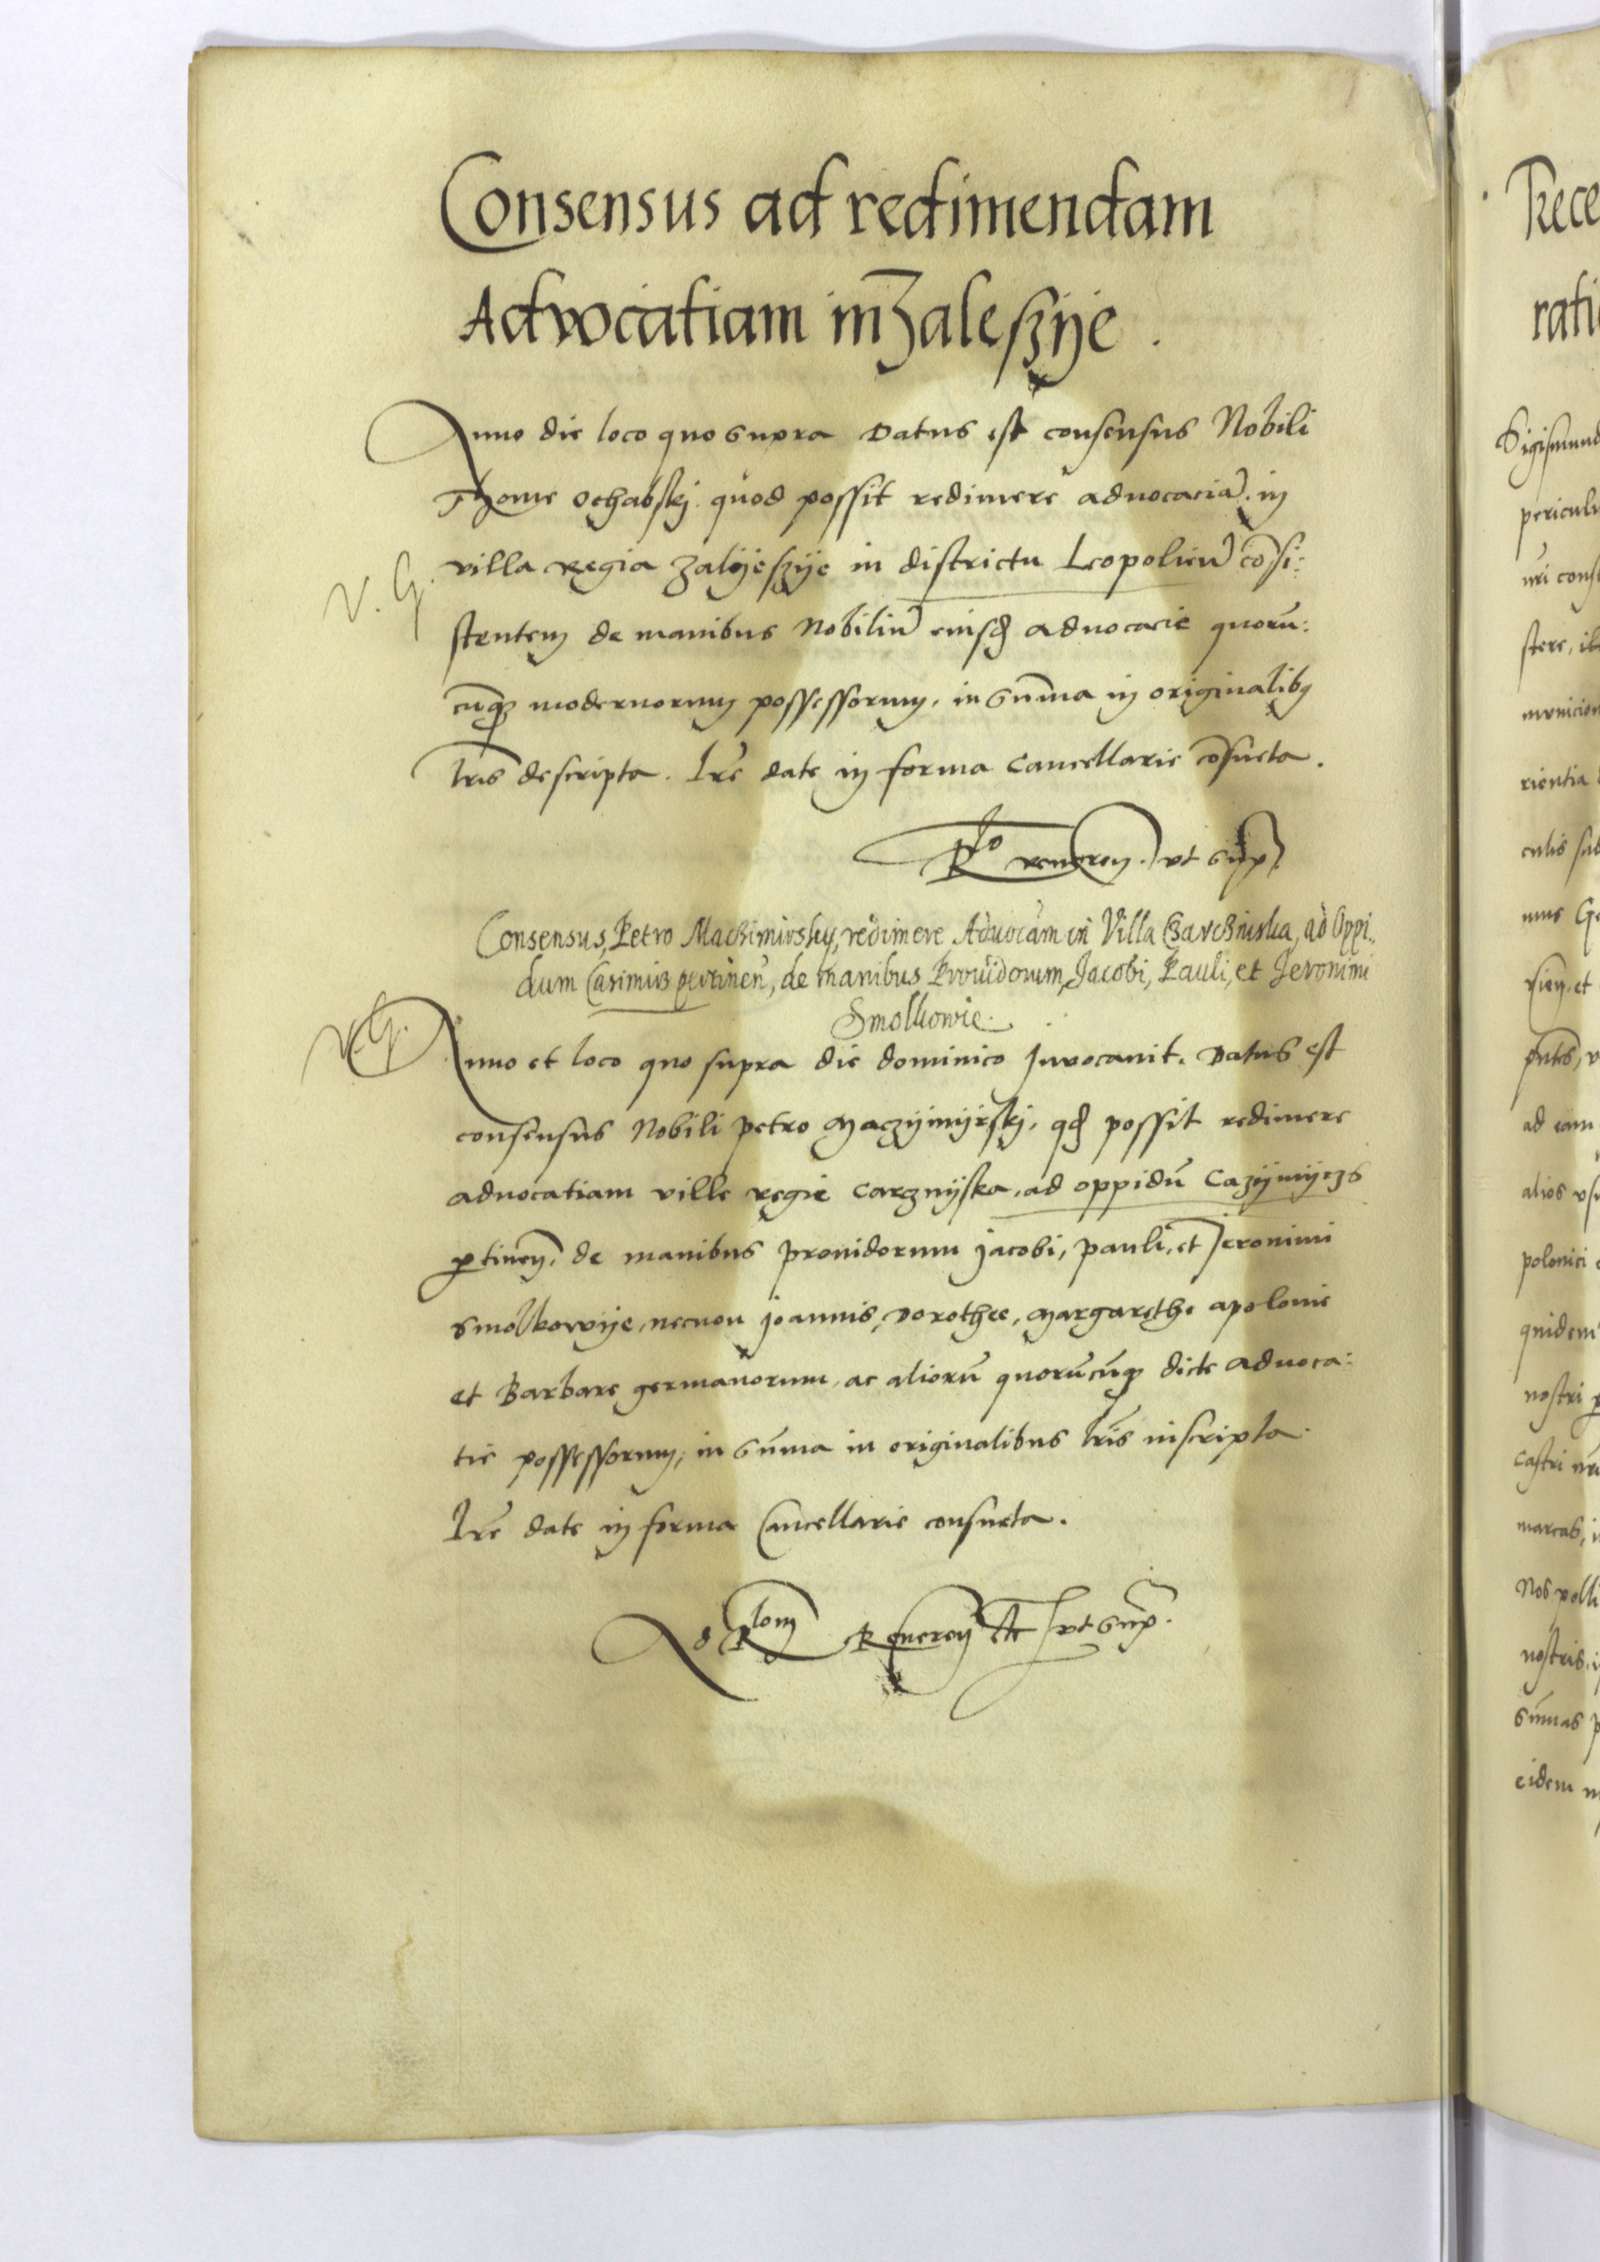 Consensus ad redimendam
Advocatiam in Zaleszije.
Anno die loco quo supra Datus est consensus Nobili
Thome Ochabskj. quod possit redimere advocaciā. in
villa Regia Zalijeszije in districtu Leopolien̄ cōsi:
V. G.
stentem de manibus Nobiliū eiusd advocacie quorū:
cūq modernorum possessorum, in sum̄a in originalibq
lr̄is descripta. Lr̄e date in forma Cancellarie cōsueta.
Rlo reueren. vt sup
Consensus, Petro Machimirsky, redimere Aduocām in Villa Czarchniska, ad Oppi..
dum Casimirz pertinen̄, de manibus Prouidorum, Jacobi, Pauli, et Jeronimi
Smolkowie.
V. G.
Anno et loco quo supra die dominico Juvocauit. Datus est
consensus Nobili Petro Maczijmijrskj, qd possit redimere
advocatiam ville regie Carznijska, ad oppidū Cazijmijrzs
ptinen̄, de manibus prouidorum jacobi, pauli, et Jeronimi
Smolkowije, necnon joannis, Dorothee, Margarethe apolonie
et Barbare germanorum, ac aliorū quorūcūq dicte advoca:
tie possessorum, in sum̄a in originalibus lr̄is inscripta.
Lr̄e date in forma Cancellarie consueta.
Ad Rlom Reueren etc vt sup.
Rece
rati
Sigismund
periculu
nr̄i cons
stere, it
municion
rientia
culis sub
mus Ge
rien, et
pn̄tes, v
ad eam
alios vs
polonici
quidem
nostri p
Castri nr̄i
marcas, i
Nos polli
nostris, i
sum̄as p
eidem n